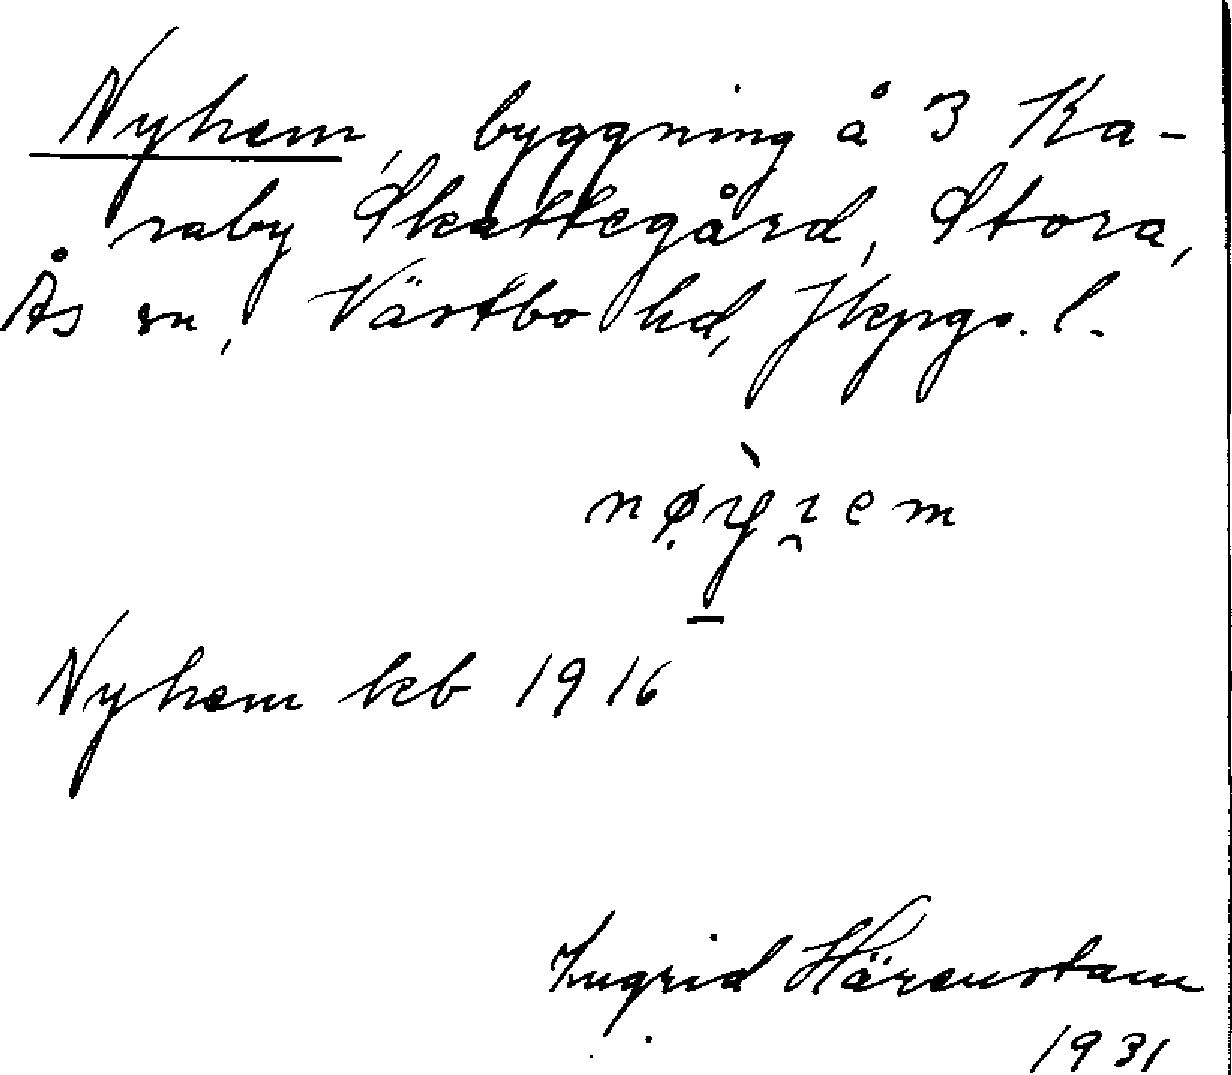 Nyhem, byggning å 3 Ka-
raby Skattegård, Stora,
Ås sn, Västbo hd, Jkpgs. l.
Nyhem kb 1916
Ingrid Härenstam
1931